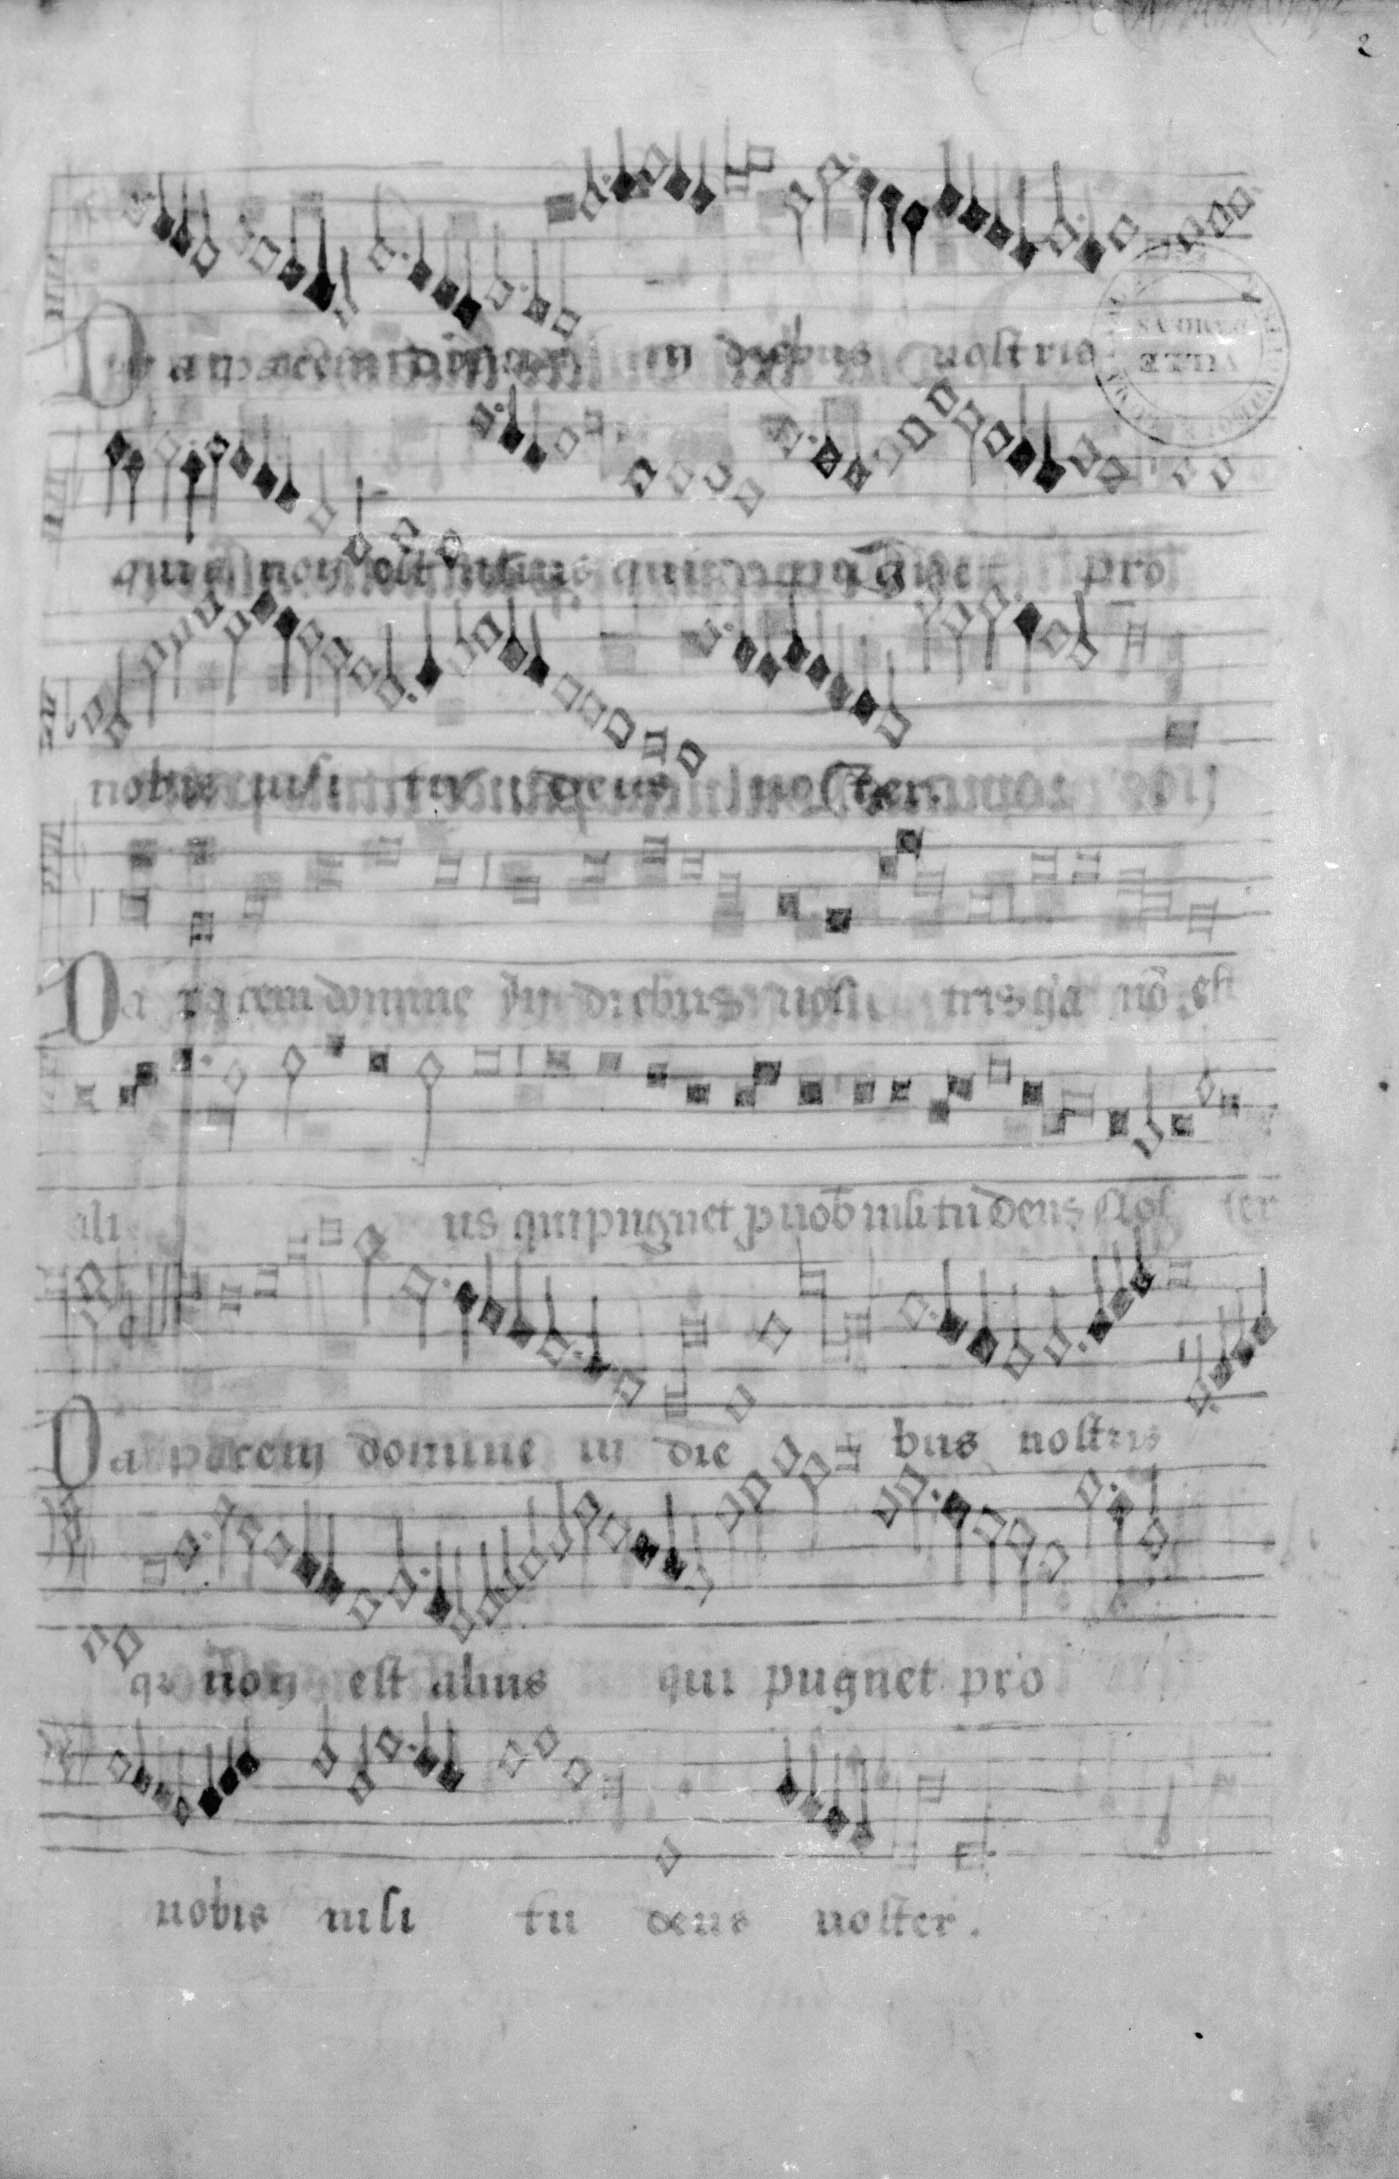 2
Da pacem domine in diebus nostris
quia non est alius qui pugnet pro
nobis nisi tu deus noster.
Da pacem domine in diebus nos tris q'a nō est
ali us qui pugnet p nob nisi tu deus nos ter
Da pacem domine in die bus nostris
non est alius qui pugnet pro
nobis nisi tu deus noster.